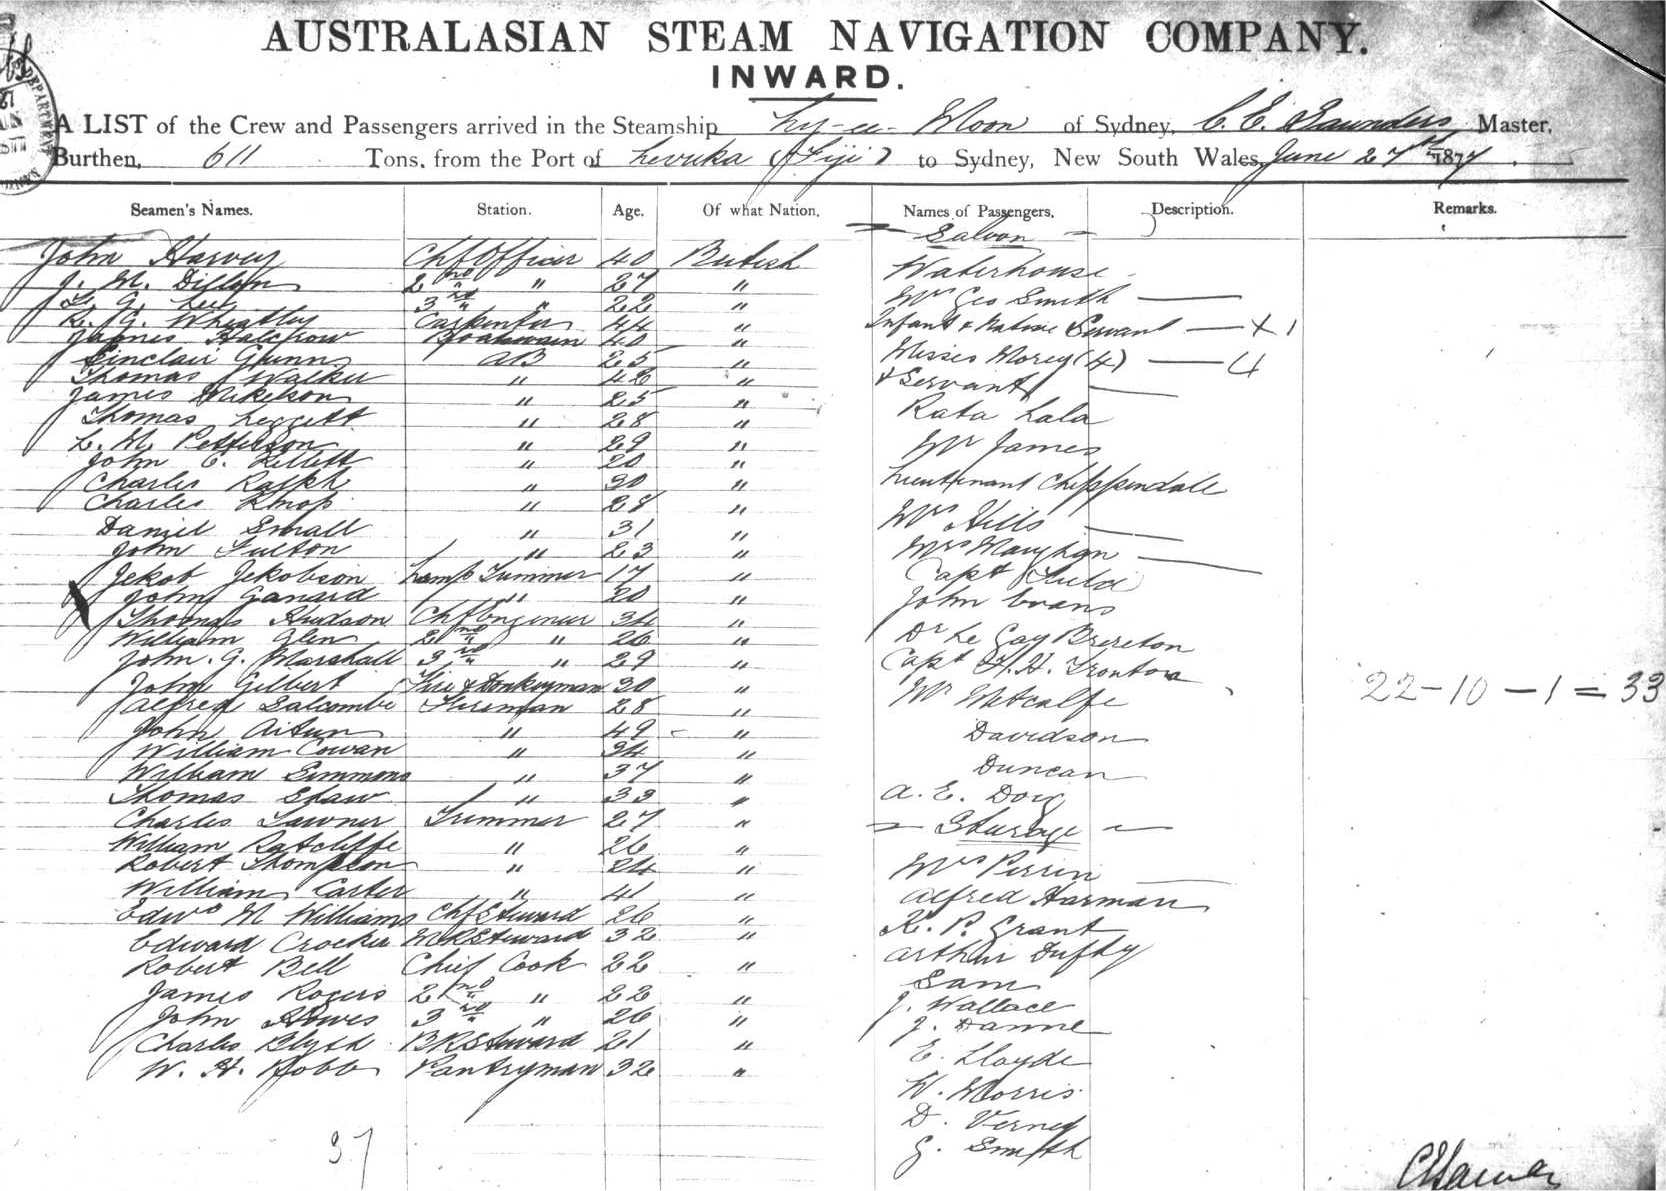 AUSTRALASIAN STEAM NAVIGATION COMPANY.
INWARD.
A LIST of the Crew and Passengers arrived in the Steamship Ly-ee-Moon of Sydney, C. E. Saunders Master,
Burthen, 611 Tons, from the Port of Levuka (Fiji) to Sydney, New South Wales, June 27th 1877.
Seamen's Names. Station. Age. Of what Nation. Names of Passengers. Description. Remarks.
John Harvey Chf Officer 40 British
J. M. Dillon 2nd " 27 "
L. G. Lee 3rd " 22 "
R. G. Wheatley Carpenter 44 "
James Halcrow Boatswain 40 "
Sinclair Gunn AB 25 "
Thomas Walker " 42 "
James Mikelson " 25 "
Thomas Leggett " 28 "
L. M. Petterson " 29 "
John C. Lillett " 20 "
Charles Ralph " 30 "
Charles Knop " 28 "
Daniel Small " 31 "
John Fulton " 23 "
Jekob Jekobson Lamp Trimmer 17 "
John Ganard " 20 "
Thomas Hudson Chf Engineer 34 "
William Glen 2nd " 26 "
John. G. Marshall 3rd " 29 "
John Gilbert Fire & Donkeyman 30 "
Alfred Salcombe Fireman 28 "
John Aitken " 49 "
William Cowan " 34 "
William Simmons " 37 "
Thomas Shaw " 33 "
Charles Tawner Trimmer 27 "
William Ratcliffe " 26 "
Robert Thompson " 24 "
William Carter " 41 "
Edwd M Williams Chf Steward 26 "
Edward Crocker Steward 32 "
Robert Bell Chief Cook 22 "
James Rogers 2nd " 22 "
John Howes 3rd " 26 "
Charles Blyth BR Steward 21 "
W. H. Hobbs Pantryman 32 "
37
Saloon
Waterhouse
Mrs Geo Smith
Infant & Native Servant + 1
Misses Morey (4) 4
& Servant
Rata Lala
Mr James
Lieutenant Chippendale
Mrs Hills
Mrs Maughan
Capt Field
John Evans
Dr Le Gay Brereton
Capt H. H. Tronton
Mr Metcalfe
Davidson
Duncan
A. E. Doig
Steerage
Mrs Perrin
Alfred Harman
K. P. Grant
Arthur Dufty
Sam
J. Wallace
J. Danne
E. Lloyde
W. Morris
D. Verney
G. Smith
22-10-1=33